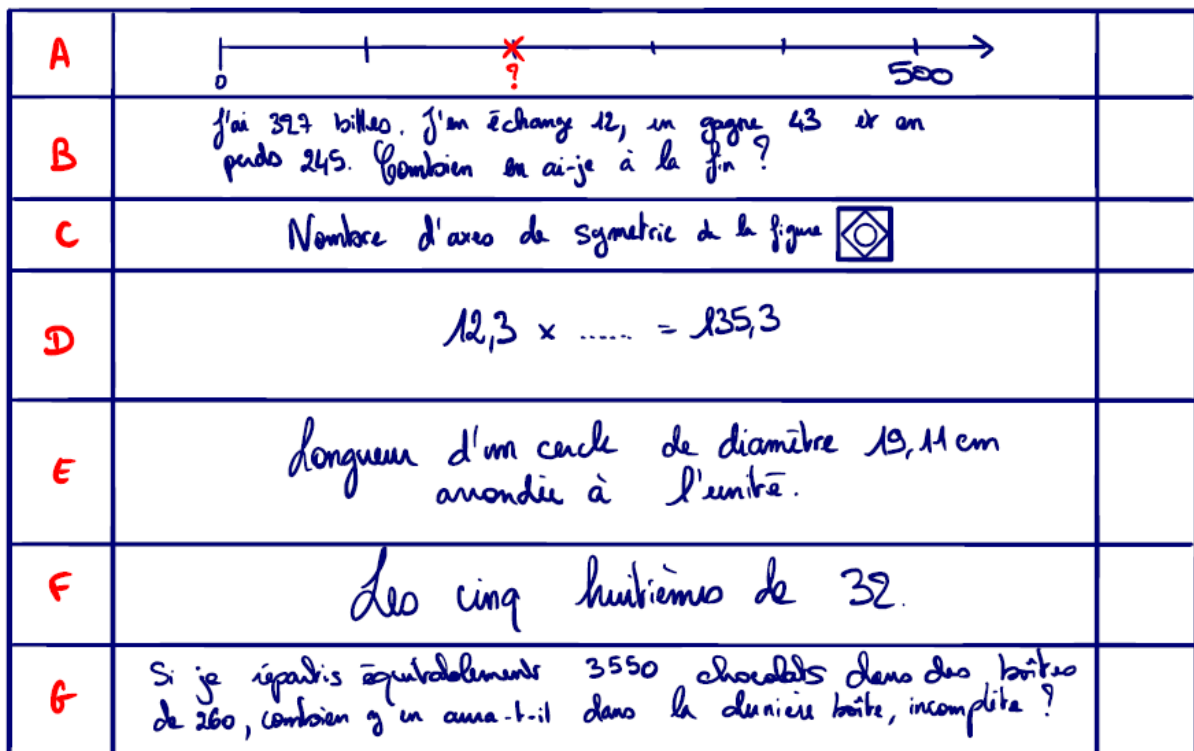 A
0 ? 500
B
J'ai 327 billes. J'en échange 12, en gagne 43 et en
perds 245. Combien en ai-je à la fin ?
C
Nombre d'axes de symetrie de la figure
D
12,3 × ..... = 135,3
E
Longueur d'un cercle de diamètre 19,11 cm
arrondie à l'unité.
F
Les cinq huitièmes de 32.
G
Si je répartis équitablements 3550 chocolats dans des boîtes
de 260, combien y en aura-t-il dans la dernière boîte, incomplète ?